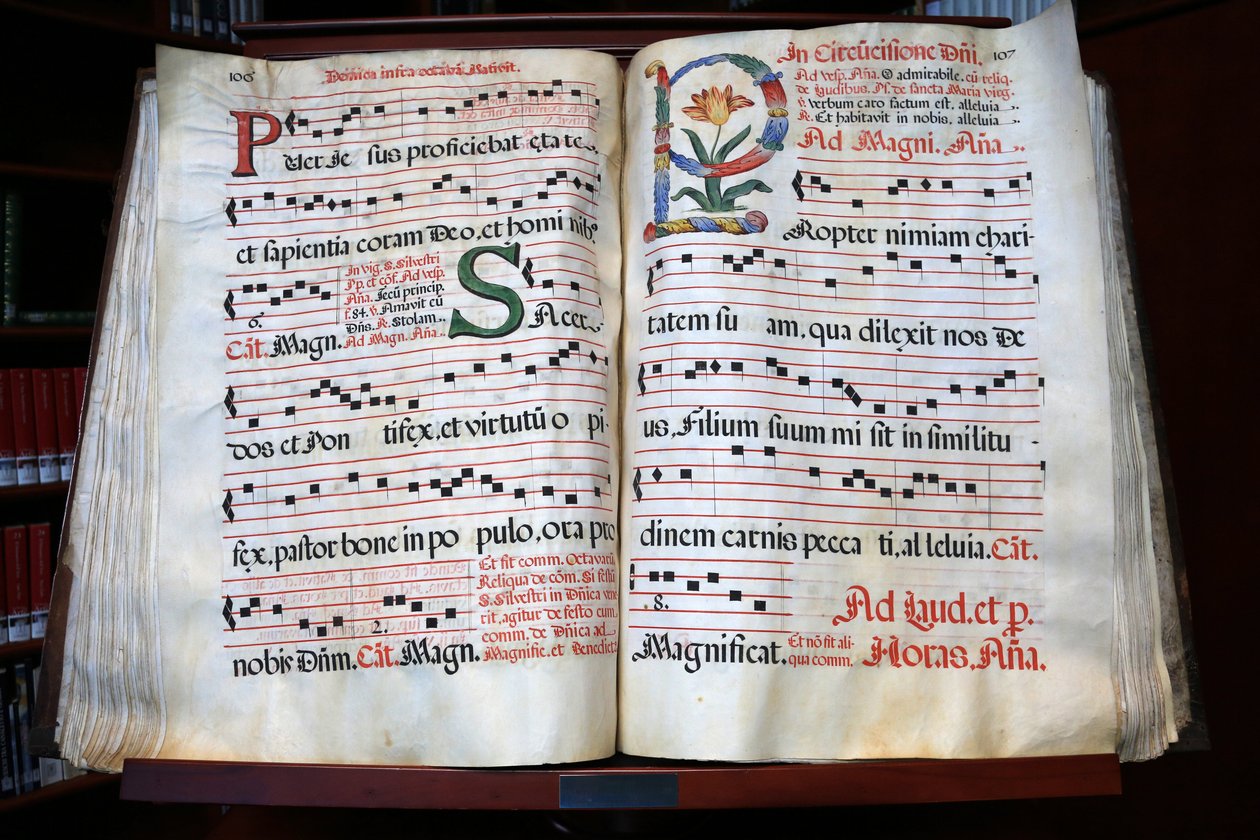 106
Domica infra octavã Nativit.
Puer Je sus proficiebat ętate,
et sapientia coram Deo, et homi nibꝰ
In vig. S. Silvestri
Pp. et cõf. Ad vesp.
Aña. Jecũ princip.
f. 84. ℣. Amavit cũ
Dñs. ℟. Stolam.
Ad Magn. Aña
6.
Cãt. Magn.
SAcer-
dos et Pon tifex, et virtutũ o pi-
fex, pastor bone in po pulo, ora pro
2.
nobis Dñm. Cãt. Magn.
Et fit comm. Octavarũ
Reliqua de cõm. Si festũ
S. Silvestri in Dñica vene
rit, agitur de festo cum
comm. de Dñica ad
Magnific. et Benedict
107
In Circũcisione Dñi.
Ad vesp. Aña. O admirabile. cũ reliq.
de Laudibus. Ps. de sancta Maria virg.
℣. verbum caro factum est. alleluia
℟. Et habitavit in nobis. alleluia
Ad Magni. Aña
PRopter nimiam chari-
tatem su am, qua dilexit nos De
us, Filium suum mi sit in similitu -
dinem carnis pecca ti, al leluia. Cãt.
8.
Magnificat.
Et nõ fit ali-
qua comm.
Ad Laud. et p.
Horas, Aña.